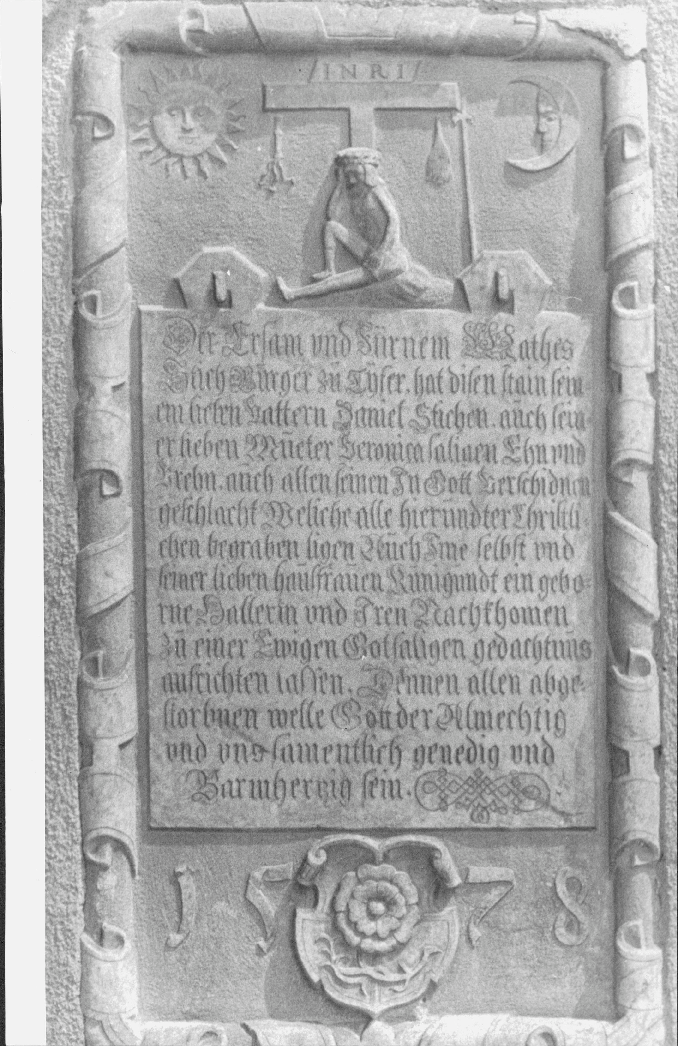 INRI
Der Ersam und Fürnem Mathes
Stich Bürger zu Tyser. hat disen stain sein-
em lieben Vattern Daniel Stichen. auch sein
er lieben Müeter Veronica saligen Ehn und
Vrehn. auch allen seinen In Gott Verschidnen
geschlacht Weliche alle hierundter Christli-
chen begraben ligen Auch Ime selbst vnd
seiner lieben haußfrauen Kunigundt ein gebo-
rne Hallerin vnd Iren Nachkhomen
zu einer Ewigen Gotsaligen gedachtnus
aufrichten lassen. Dennen allen abge-
storbnen welle Gott der Almechtig
vnd vns samentlich genedig vnd
Barmhertzig sein.
1578